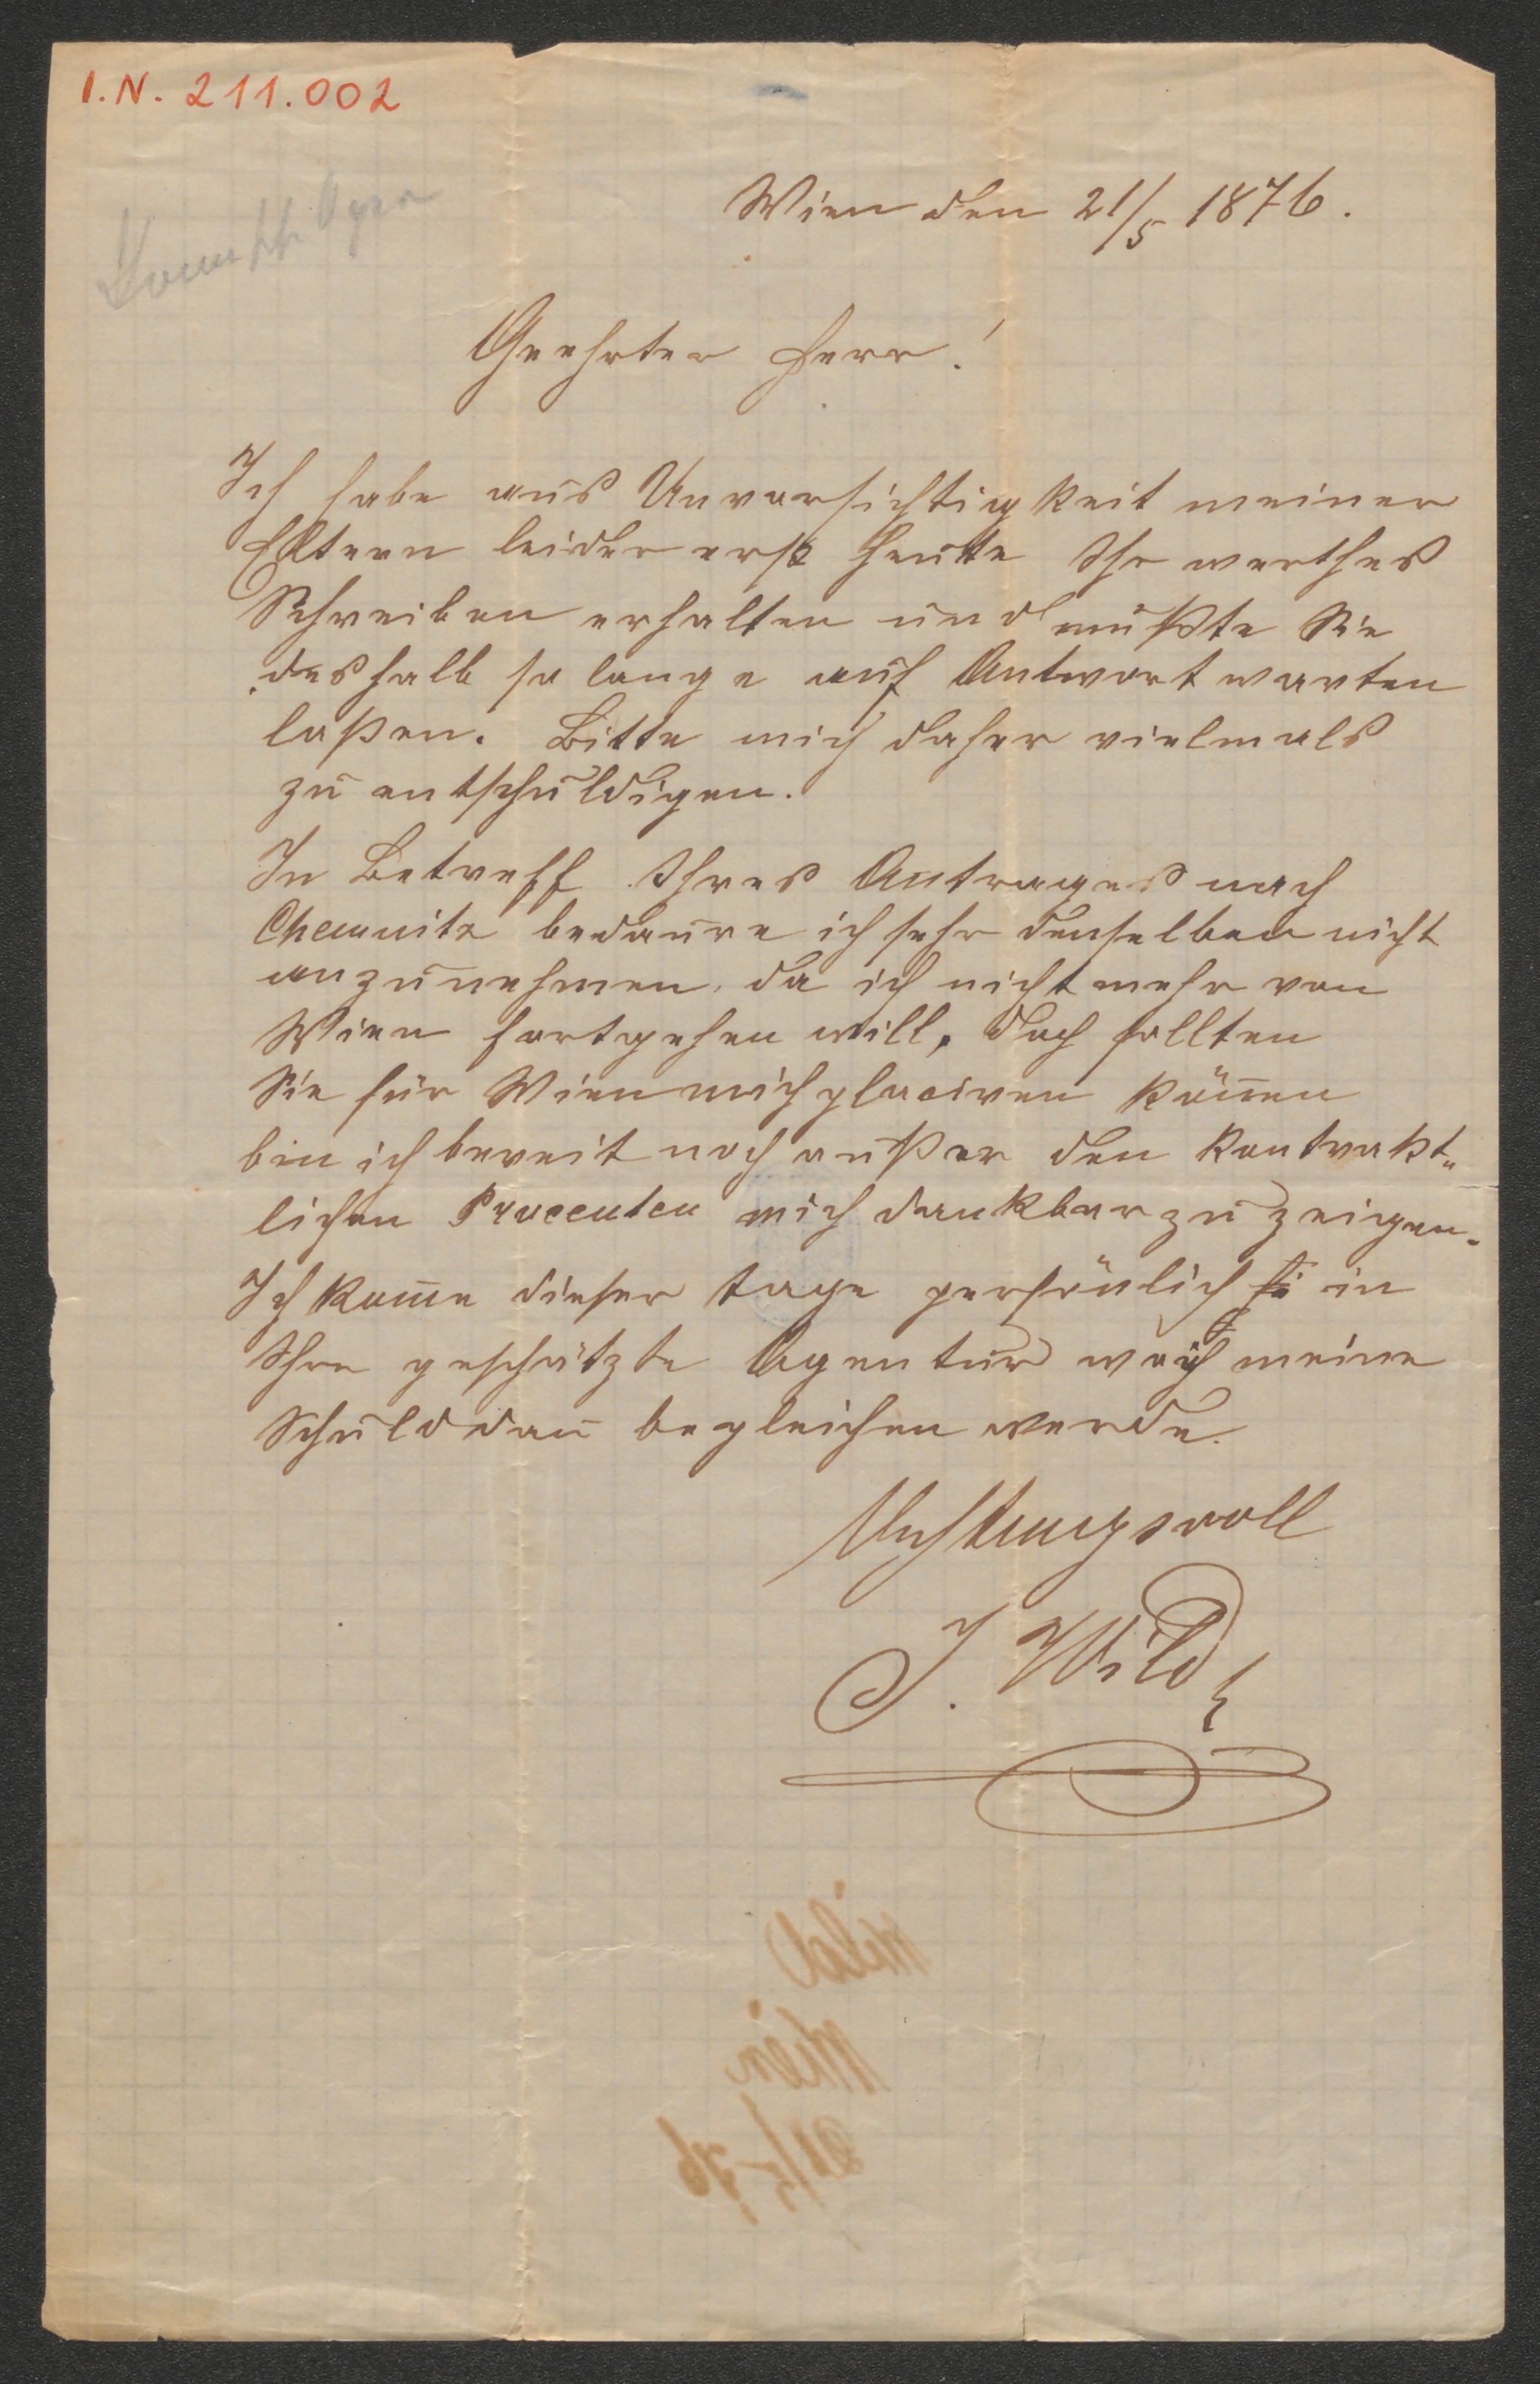 I.N. 211.002
Wien den 21/5 1876.
Geehrter Herr!
Ich habe aus Unvorsichtigkeit meiner
Eltern leider erst heute Ihr werthes
Schreiben erhalten und mußte Sie
deshalb so lange auf Antwort warten
laßen. Bitte mich daher vielmals
zu entschuldigen.
In Betreff Ihres Antrages nach
Chemnitz bedaure ich sehr denselben nicht
anzunehmen, da ich nicht mehr von
Wien fortgehen will, doch sollten
Sie für Wien mich placiren köñen
bin ich bereit noch außer den kontrakt„
lichen Procenten mich dankbar zu zeigen.
Ich kom̅e dieser tage persönlich in
Ihre geschätzte Agentur meine
Schuld dan̅ begleichen werde.
Achtungsvoll
J. Wild
Wild
Wien
21/5 76